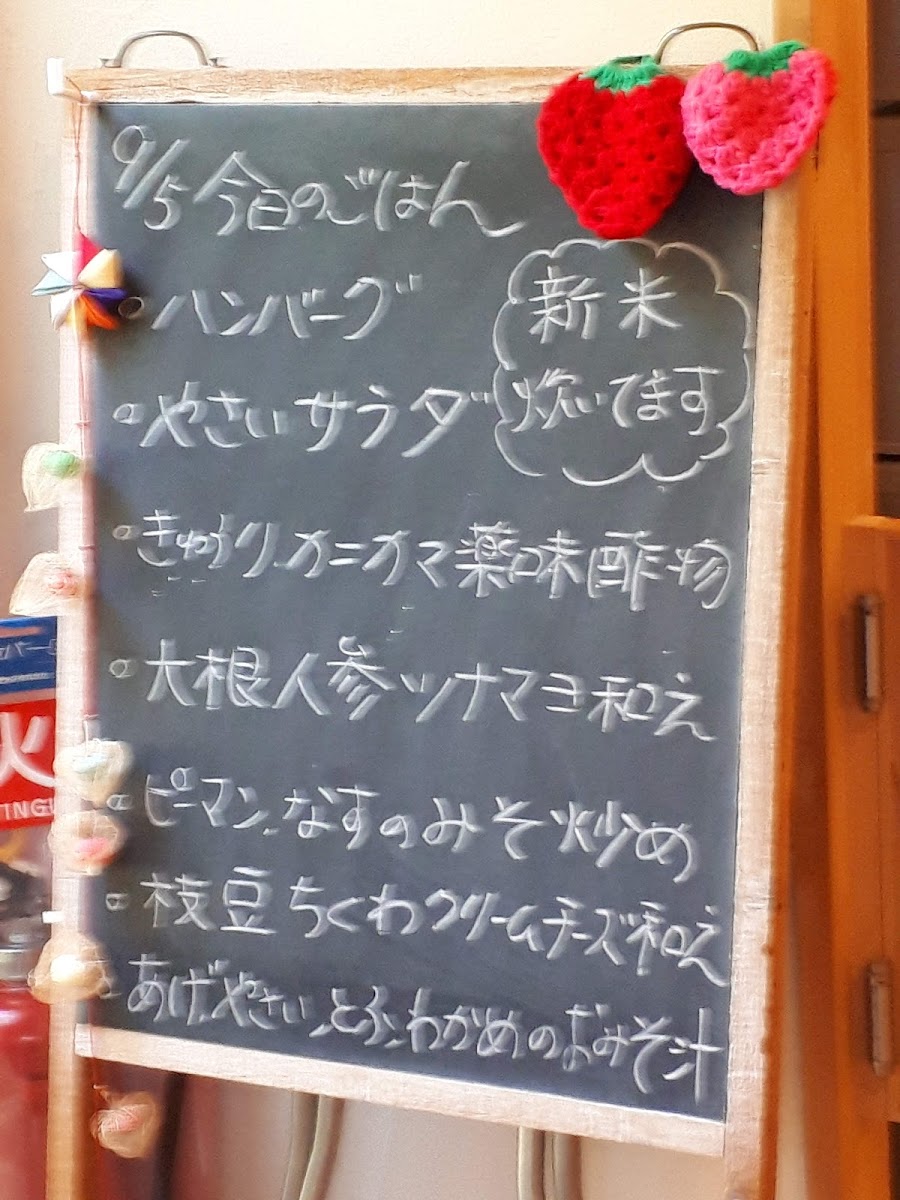 9/5 今日のごはん
新米
炊いてます
○ ハンバーグ
○ やさいサラダ
○ きゅうり、カニカマ薬味酢物
○ 大根人参ツナマヨ和え
○ ピーマン、なすのみそ炒め
○ 枝豆ちくわクリームチーズ和え
○ あげ、やさい、とうふ、わかめのおみそ汁
火